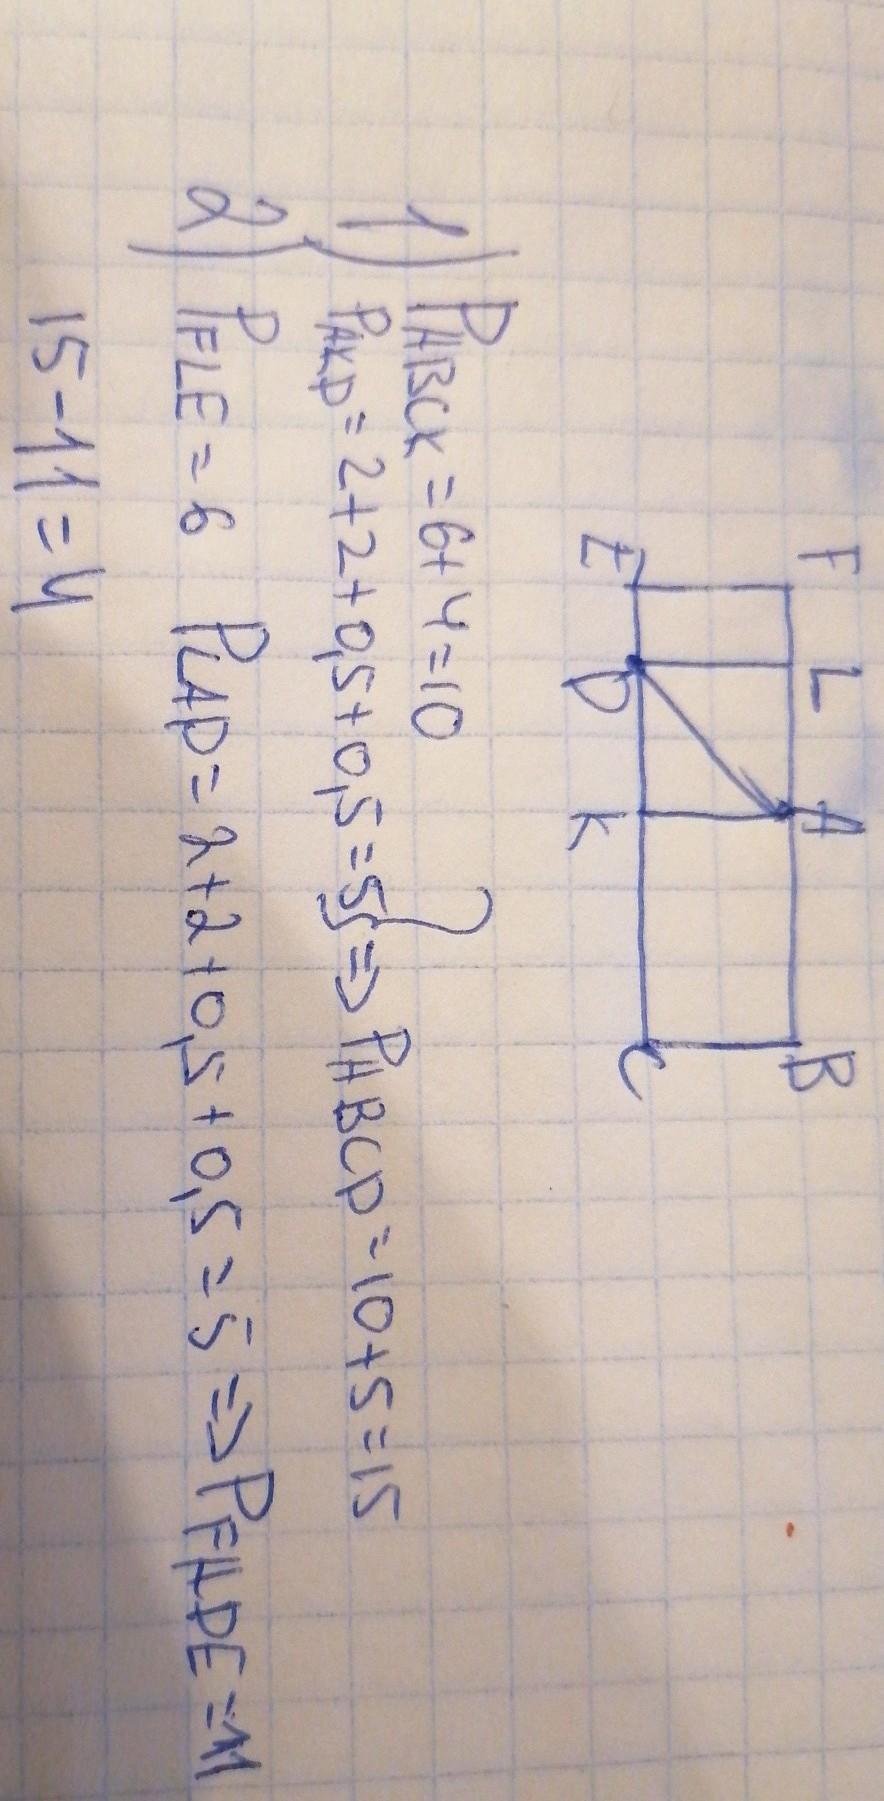 F L A B
E D K C
1) PABCK = 6+4=10
PAKD = 2+2+0,5+0,5=5 } => PABCD = 10+5=15
2) PFLE = 6 PLAD = 2+2+0,5+0,5=5 => PFADE = 11
15-11=4